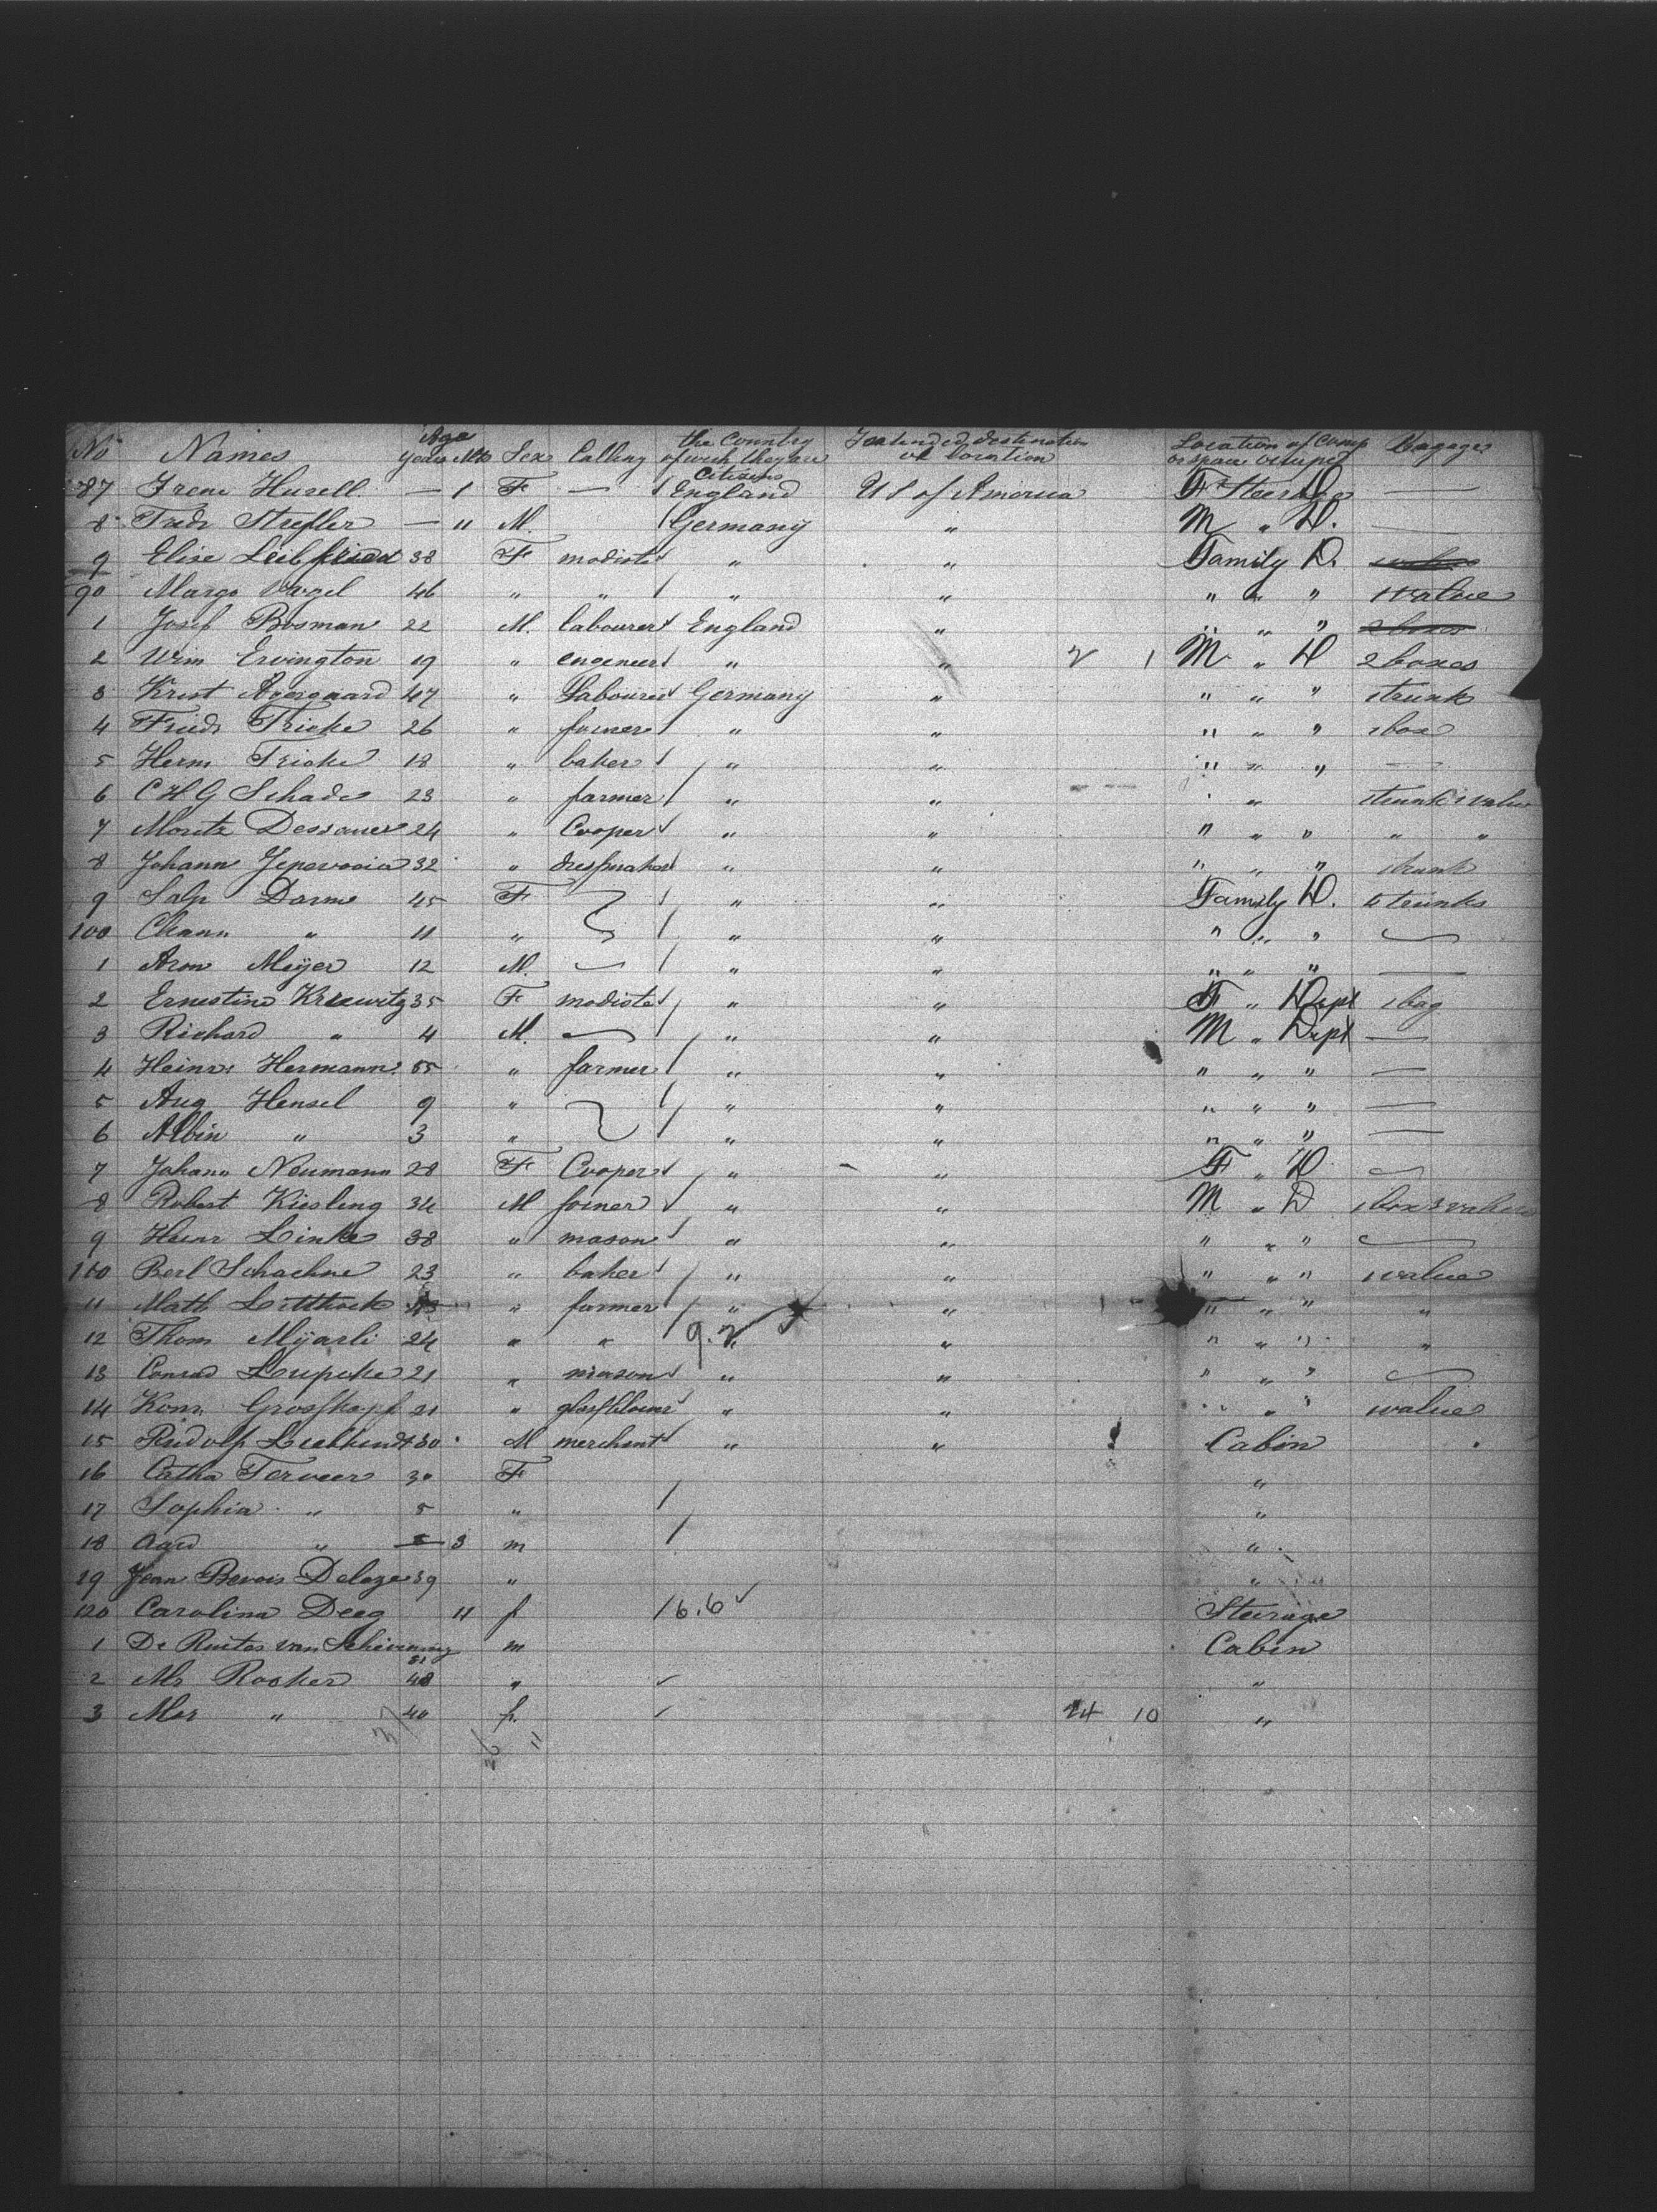 No Names Age Years Mts Sex Calling the Country of wich they are Citizens Intended destination or location Location of Comp or space occupd Bagages
87 Irene Husell — 1 F — England U S of America F Steerage D. —
8 Fredr Strefler — 11 M Germany " M " D.
9 Elise Leibfried 38 F modiste " " Family D.
90 Margo Vogel 46 " " " " " " " 1 valise
1 Josef Bosman 22 M. labourer England " " " " 2 boxes
2 Wim Ervington 19 " engeneer " " 2 1 M " D 2 boxes
3 Krist Aggergaard 47 " Labourer Germany " " " " 1 trunk
4 Friedr Fricke 26 " joiner " " " " " 1 box
5 Herm Fricke 18 " baker " " " " " —
6 C H G Schade 23 " farmer " " " 1 trunk 1 valise
7 Moritz Dessauer 24 " Cooper " " " " " " "
8 Johann 32 " dressmaker " " " " " 1 trunk
9 Salp Dorme 45 F " " Family D. 4 trunks
100 Chann " 11 " " " " " " —
1 Aron Meijer 12 M. — " " " " " —
2 Ernestine Kreuwitz 35 F modiste " " F " Dept 1 bag
3 Richard " 4 M. — " " M " Dept —
4 Heinr: Hermann 55 " farmer " " " " " —
5 Aug Hensel 9 " " " " " " —
6 Albin " 3 " " " " " " —
7 Johann Neumann 28 F Cooper " " F " D. —
8 Robert Kiesling 34 M joiner " " M " D 1 box 3 valises
9 Heinr Linke 38 " mason " " " " " —
110 Berl Schachne 23 " baker " " " " " 1 valise
11 Math " farmer " " " " " "
12 Thom Mijarli 24 " " 9.2 " " " " " "
13 Conrad Lupcke 21 " mason " " " " " —
14 Konr Grosskopf 21 " glassblower " " " " 1 valise
15 Rudolf 30 M merchant " " Cabin
16 Catha Terveer 30 F "
17 Sophia " 5 " "
18 Aard " 3 m "
19 Jean Bevois Deloze 39 " "
120 Carolina Deeg 11 f 16.6 Steerage
1 De Ruiter van 51 m Cabin
2 Mr Rooker 48 " "
3 Mrs " 40 f. 24 10 "